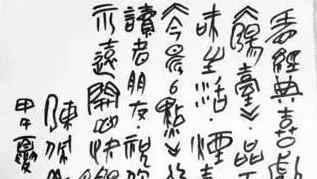 看經典喜劇
《陽臺》·品
味生活·煙
《今晨6點》
讀者朋友祝
永遠開心快
陳佩
甲午夏